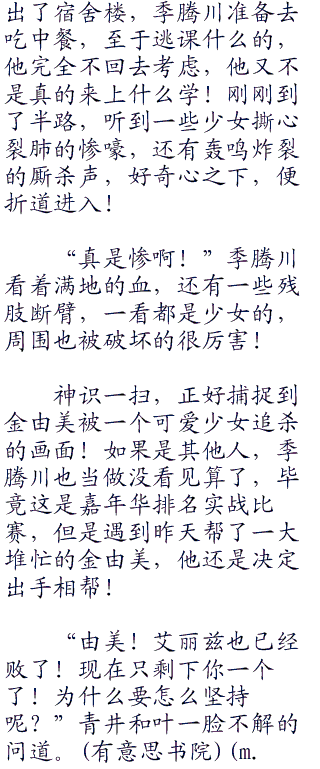 出了宿舍楼，季腾川准备去
吃中餐，至于逃课什么的，
他完全不回去考虑，他又不
是真的来上什么学！刚刚到
了半路，听到一些少女撕心
裂肺的惨嚎，还有轰鸣炸裂
的厮杀声，好奇心之下，便
折道进入！
“真是惨啊！”季腾川
看着满地的血，还有一些残
肢断臂，一看都是少女的，
周围也被破坏的很厉害！
神识一扫，正好捕捉到
金由美被一个可爱少女追杀
的画面！如果是其他人，季
腾川也当做没看见算了，毕
竟这是嘉年华排名实战比
赛，但是遇到昨天帮了一大
堆忙的金由美，他还是决定
出手相帮！
“由美！艾丽兹也已经
败了！现在只剩下你一个
了！为什么要怎么坚持
呢？”青井和叶一脸不解的
问道。(有意思书院)(m.